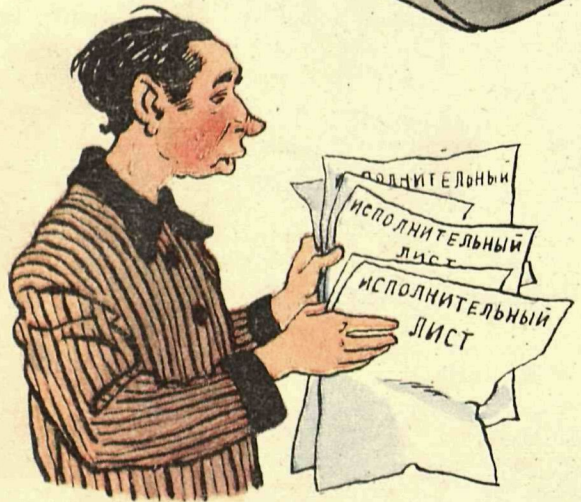 ИСПОЛНИТЕЛЬНЫЙ
ИСПОЛНИТЕЛЬНЫЙ
ЛИСТ
ИСПОЛНИТЕЛЬНЫЙ
ЛИСТ